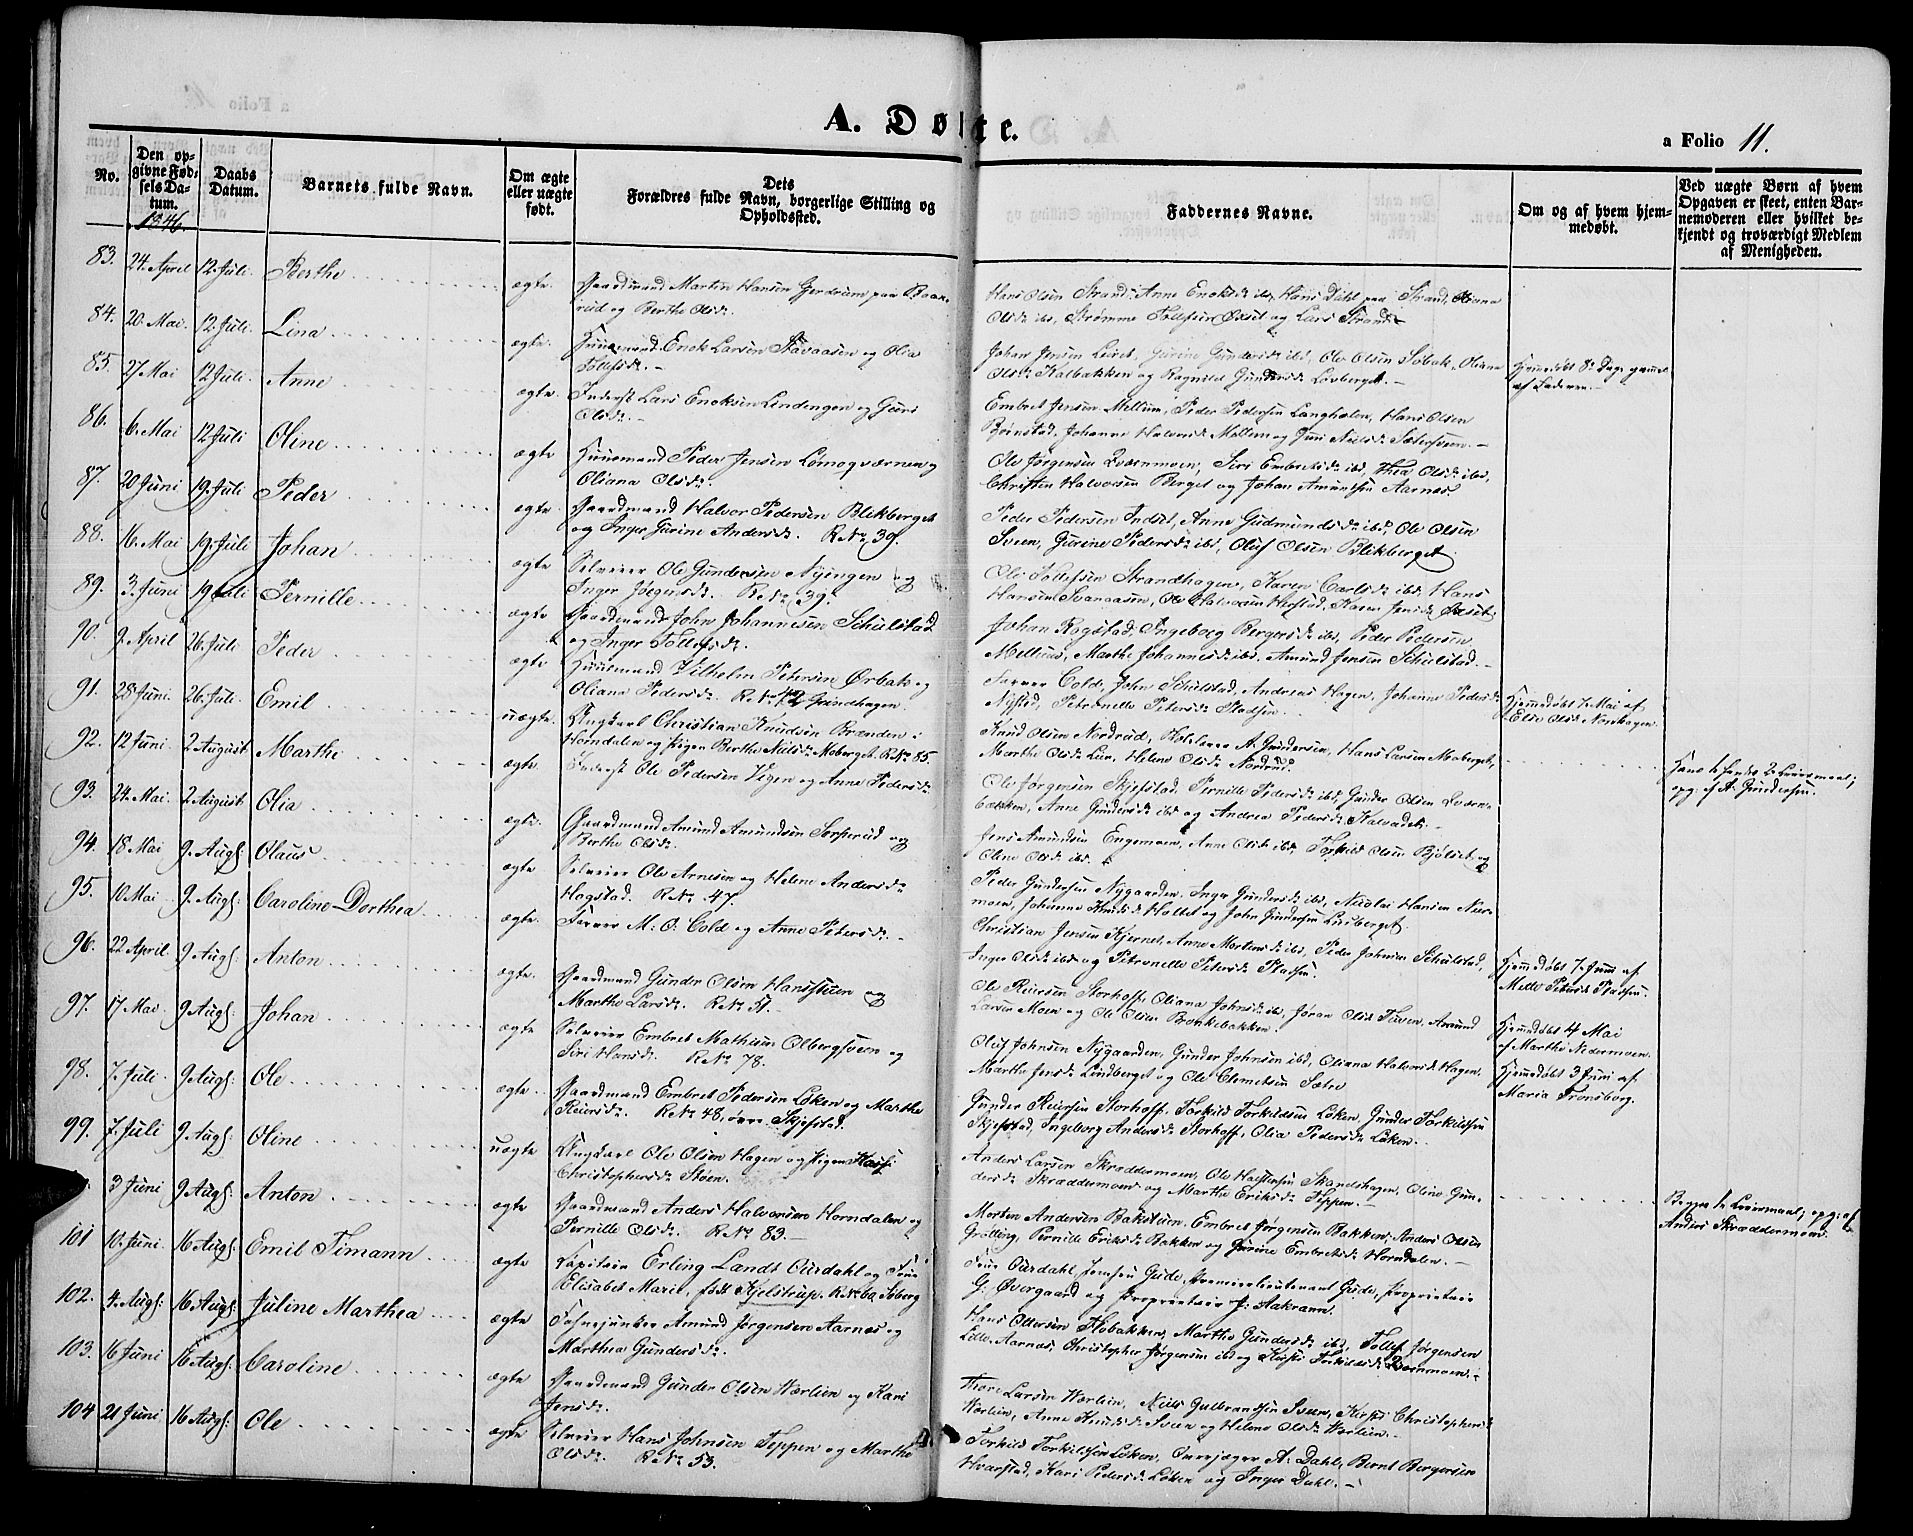 A. Døbte.
a Folio 11.
No.
Den op-
givne Fød-
sels Da-
tum.
1846.
Daabs
Datum.
Barnets fulde Navn.
Om ægte
eller uægte
født.
Dets
Forældres fulde Navn, borgerlige Stilling og
Opholdssted.
Faddernes Navne.
Om og af hvem hjem-
medøbt.
Ved uægte Børn af hvem
Opgaven er skeet, enten Bar-
nemoderen eller hvilket be-
kjendt og troværdigt Medlem
af Menigheden.
83. 24. April 12. Juli Berthe ægte Gaardmand Martin Hansen Gjerdrum paa
og Berthe Olsdr.
Hans Olsen Strand, Anne Enoksdr ibd, Hans Dahl paa Strand, Oliana
Olsdr ibd, Strømme Tollefsen Øxset og Lars Strand.-
84. 20. Mai. 12. Juli Lina ægte Huusmand Enok Larsen Stavaasen og Olia
Tollefsdr.-
Johan Jensen Leiret, Gurine Gundersdr ibd, Ole Olsen Søbak, Oliana
Olsdr Kalbakken og Ragnild Gundersdr Løvberget.-
Hjemmedøbt 8 Dage gammel
af Faderen.
85. 27 Mai 12 Juli Anne ægte Inderst Lars Enoksen Lindengen og Guri
Olsdr.-
Embret Jensen Mellum, Peder Pedersen Langholen, Hans Olsen
Børnstad, Johanne Halvorsdr Mellum og Guri Nielsdr Sætersveen.-
86. 6. Mai 12 Juli Oline ægte Huusmand Peder Jensen Lomoqværnen og
Oliana Olsdr.
Ole Jørgensen Qværnmoen, Siri Embretsdr ibd, Thea Olsdr ibd,
Christen Halvorsen Berget og Johan Amundsen Aarnæs.
87. 20 Juni 19. Juli Peder ægte Gaardmand Halvor Pedersen Blikberget
og Inger Gurine Andersdr. R.No 39.
Peder Pedersen Indset, Anne Gudmundsdr ibd, Ole Olsen
Sveen, Gurine Pedersdr ibd, Oluf Olsen Blikberget.
88. 16. Mai 19. Juli Johan ægte Selveier Ole Gundersen Nyingen og
Inger Jørgensdr. R.No 39.
Ole Tollefsen Strandhagen, Karen Carlsdr ibd, Hans
Hansen Svanaasen, Ole Halvorsen Herstad, Karen Jensdr Øxset.
89. 3. Juni 19 Juli Pernille ægte Gaardmand John Johannesen Schulstad
og Inger Tollefsdr.
Johan Rogstad, Ingeborg Bergersdr ibd, Peder Pedersen
Mellum, Marthe Johannesdr ibd, Amund Jensen Schulstad.-
90. 9. April 26. Juli Peder ægte Huusmand Vilhelm Petersen Ørbak og
Oliana Pedersdr. R.No 42 Grindhagen.
Farver Cold, John Schulstad, Andreas Hagen, Johanne Pedersdr
Nysted, Petronelle Petersdr Stadsen.
Hjemmedøbt 7. Mai af
Elie Olsdr Nordhagen.
91. 28 Juni. 26. Juli. Emil uægte Ungkarl Christian Knudsen Brænden i
Horndalen og Pigen Berthe Nilsdr Moberget. R.No 85.
Knud Olsen Nordrud, Kirkesanger A. Gundersen, Hans Larsen Moberget,
Marthe Olsdr Lien, Helene Olsdr Nordrud.
Hans 1. hendes 2. Leiermaal;
opg: af A. Gundersen.
92. 12 Juni. 2 August Marthe ægte Inderst Ole Pedersen Vigen og Anne Pedersdr
Ole Jørgensen Skjefstad, Pernille Pedersdr ibd, Gunder Olsen Qværn-
bækken, Anne Gundersdr ibd og Andrea Pedersdr Kalvadet.-
93. 24. Mai. 2 August Olia ægte Gaardmand Amund Amundsen Sorperud og
Berthe Olsdr.
Jens Amundsen Engemoen, Anne Olsdr ibd, Torkild Olsen Bjølset og
Oline Olsdr ibd.
94. 18 Mai 9. Augs: Olaus ægte Selveier Ole Arnesen og Helene Andersdr
Hogstad. R.No. 47.
Peder Gundersen Nygaarden, Inger Gundersdr ibd, Nicolai Hansen Neder-
moen, Johanne Knudsdr Holtet og John Gundersen Linberget.
95. 10 Mai 9. Augs: Caroline Dorthea ægte Farver M. O. Cold og Anne Petersdr.-
Christian Jensen Kjernes, Anne Mortensdr ibd, Peder Johnsen Schulstad,
Inger Olsdr ibd og Petronelle Petersdr Stadsen.
Hjemmedøbt 7. Juni af
Mette Petersdr Stadsen.
96. 22 April 9 Augs: Anton ægte Gaardmand Gunder Olsen Hansstuen og
Marthe Larsdr. R.No 51.-
Ole Reiersen Storhoff, Oliana Johnsdr ib, Jøran Olsdr Tuven, Amund
Larsen Moen og Ole Olsen Bronkebakken.
Hjemmedøbt 4 Mai
af Marthe Nedermoen.
97. 17 Mai 9 Augs: Johan ægte Selveier Embret Mathisen Olbergsveen og
Siri Hansdr. R.No 78.
Oluf Johnsen Nygaarden, Gunder Johnsen ibd, Oliana Halvorsdr Hagen,
Marthe Jensdr Lindberget og Ole Clemetsen Sætre
Hjemmedøbt 3 Juni af
Maria Tronsborg.
98. 7. Juli 9 Augs: Ole ægte Gaardmand Embret Pedersen Løken og Marthe
Reiersdr. R.No 48, øvre Skjefstad.
Gunder Reiersen Storhoff, Torkild Torkildsen Løken, Gunder Torkildsen
Skjefstad, Ingeborg Andersdr Storhoff, Olia Pedersdr Løken.-
99. 7. Juli 9 Augs: Oline uægte Ungkarl Ole Olsen Hagen og Pigen
Christophersdr Støen.
Anders Larsen Skræddermoen, Ole Halstensen Strandhagen, Oline Gun-
dersdr Skræddermoen og Marthe Eriksdr Teppen.-
Begges 1te Leiermaal; opg: af
Anders Skræddermoen.
3 Juni 9 Augs: Anton ægte Gaardmand Anders Halvorsen Horndalen og
Pernille Olsdr. R.No 83.-
Morten Andersen Bakstuen, Embret Jørgensen Bakken, Anders Olsen
Grøtting, Pernille Eriksdr Bakken og Gurine Embretsdr Horndalen.-
101 10. Juni. 16 Augs: Emil Timann ægte Kapitain Erling Lands Ourdahl og Frue
Elisabet Marie, født Kjelstrup. R.No 62 Søberg
Frue Ourdahl, Jomfru Gude, Premierlieutenant Gude, Proprietair
G: Overgaard og Proprietair J: Aakrann.
102. 4. Augs: 16 Augs: Juline Marthea ægte Fanejunker Amund Jørgensen Aarnæs og
Marthea Gundersdr.
Hans Ottersen Høbakken, Marthe Gundersdr ibd, Tollef Jørgensen
Lille-Aarnæs, Christopher Jørgensen ibd og Kirsti Torkildsdr Qvernmoen.-
103. 16 Juni 16 Augs: Caroline ægte Gaardmand Gunder Olsen Wærlien og Kari
Jensdr.
Thore Larsen Wærlien, Niels Gulbrandsen Sveen, Kirsti Christophersdr
Wærlien, Anne Knudsdr Sveen og Helene Olsdr Wærlien.-
104 21 Juni 16 Augs: Ole ægte Selveier Hans Johnsen Teppen og Marthe
Olsdr. R.No 53.
Torkild Torkildsen Løken, Overjæger A: Dahl, Bernt Bergersen
Hvarstad, Kari Pedersdr Løken og Inger Dahl.-